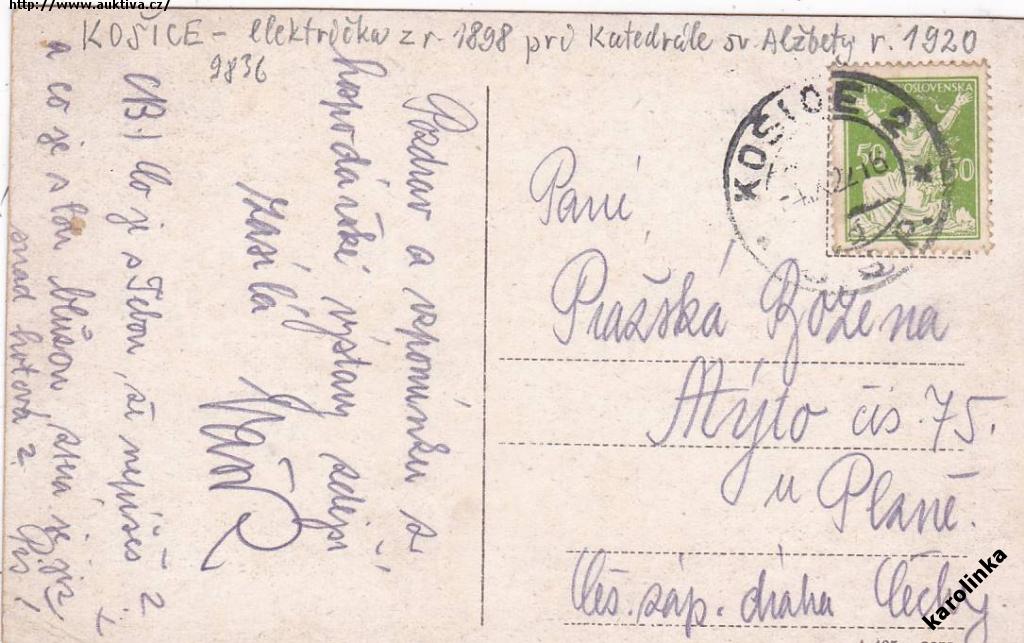 http://www.auktiva.cz/
KOŠICE - električka z r. 1898 pri Katedrále sv. Alžbety r. 1920
9836
Pozdrav a vzpomínku z
hospodářské výstavy zdejší
zasílá
CB. Co je s Tebou, že nepíšeš?
a co je s tou blůsou, snad je již
snad hotová?
Piš!
KOŠICE 2
ČESKOSLOVENSKA
50 50
Paní
Pražská Božena
Mýto čís 75.
u Plané.
Čes. záp. dráha Čechy
karolinka